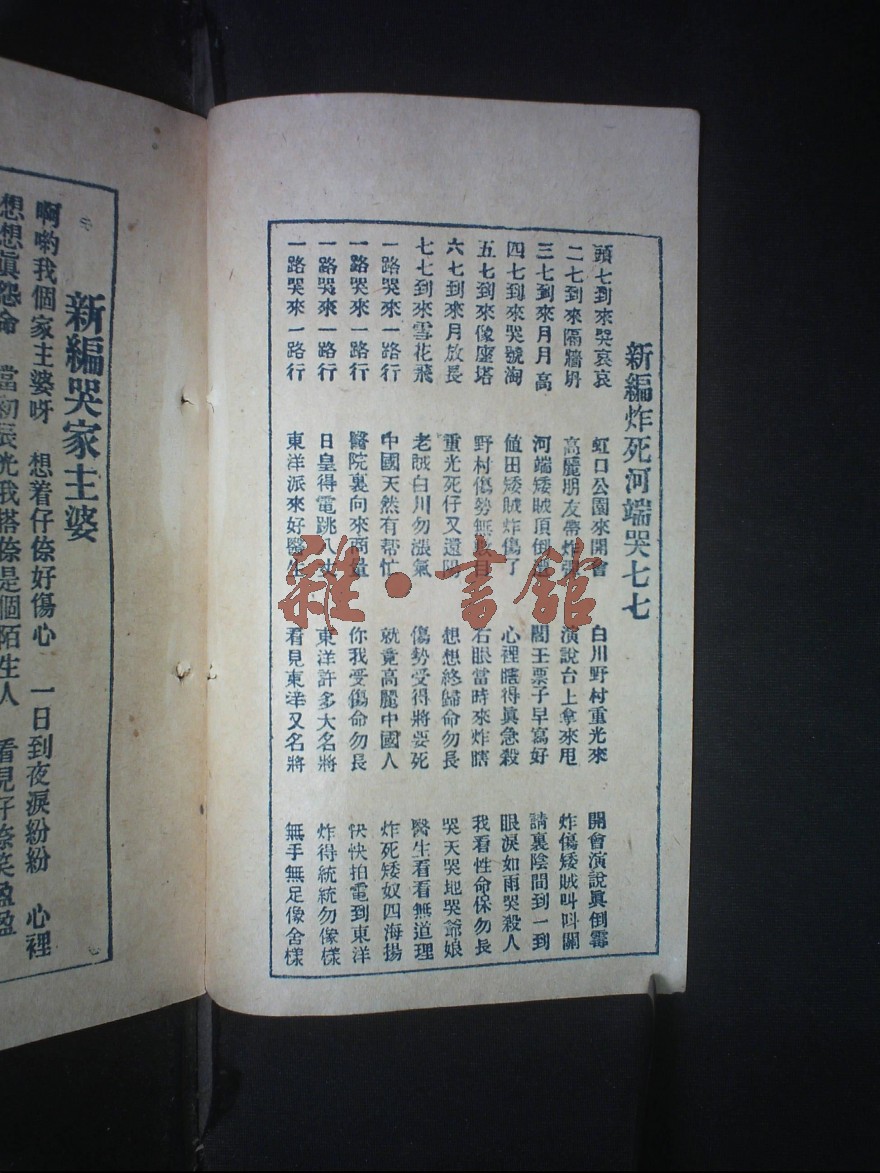 新編炸死河端哭七七
頭七到來哭哀哀 虹口公園來開會 白川野村重光來 開會演說眞倒霉
二七到來隔牆坍 高麗朋友帶炸彈 演說台上拿來甩 炸傷矮賊叫叫關
三七到來月月高 河端矮賊頂倒 閻王票子早寫好 請裏陰間到一到
四七到來哭號淘 値田矮賊炸傷了 心裡瞎得眞急殺 眼淚如雨哭殺人
五七到來像座塔 野村傷勢無 目 右眼當時來炸瞎 我看性命保勿長
六七到來月放長 重光死仔又還陽 想想終歸命勿長 哭天哭地哭爺娘
七七到來雪花飛 老賊白川勿漲氣 傷勢受得將要死 醫生看看無道理
一路哭來一路行 中國天然有帮忙 就竟高麗中國人 炸死矮奴四海揚
一路哭來一路行 醫院裏向來商量 你我受傷命勿長 快快拍電到東洋
一路哭來一路行 日皇得電跳八丈 東洋許多大名將 炸得統統勿像樣
一路哭來一路行 東洋派來好醫生 看見東洋又名將 無手無足像舍樣
雜·書館
新編哭家主婆
啊喲我個家主婆呀 想着仔倷好傷心 一日到夜淚紛紛 心裡
想想眞怨命 當初辰光我搭倷是個陌生人 看見仔倷笑盈盈